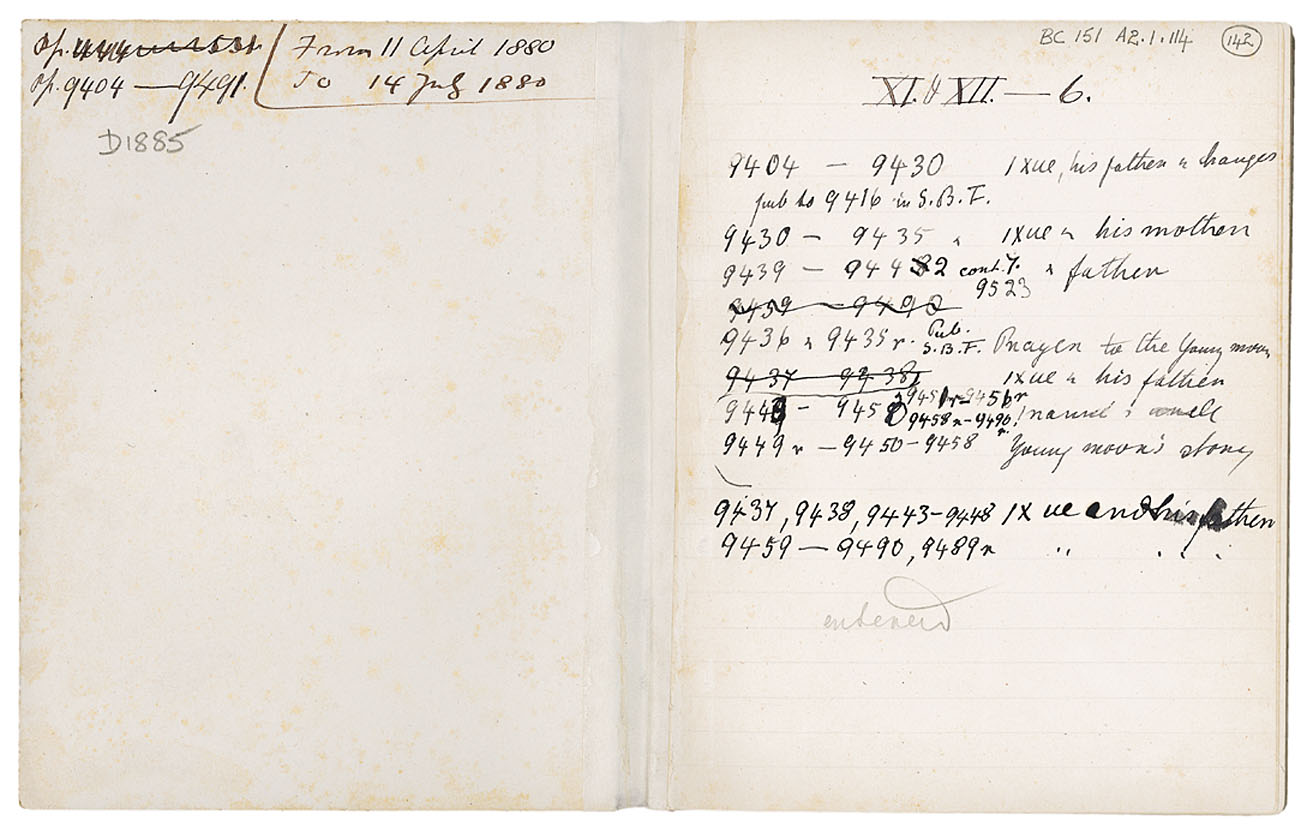 pp. 9404 — 9491.
From 11 April 1880
To 14 July 1880
D1885
BC 151 A2.1.114
142
XI. & XII. — 6.
9404 — 9430 !xue, his father & changes
pub to 9416 in S.B.F.
9430 — 9435 !xue & his mother
9439 — 9442 cont. 7. & father
9523
9459 — 9490
9436 & 9435 r. Pub. S.B.F. Prayer to the Young moon
9437 — 9438 !xue & his father
9451r–9456r
9458r–9490r
9449r — 9450 – 9458 Young moon's story
9437, 9438, 9443–9448 !xue and his father
9459 — 9490, 9489r " " " "
entered